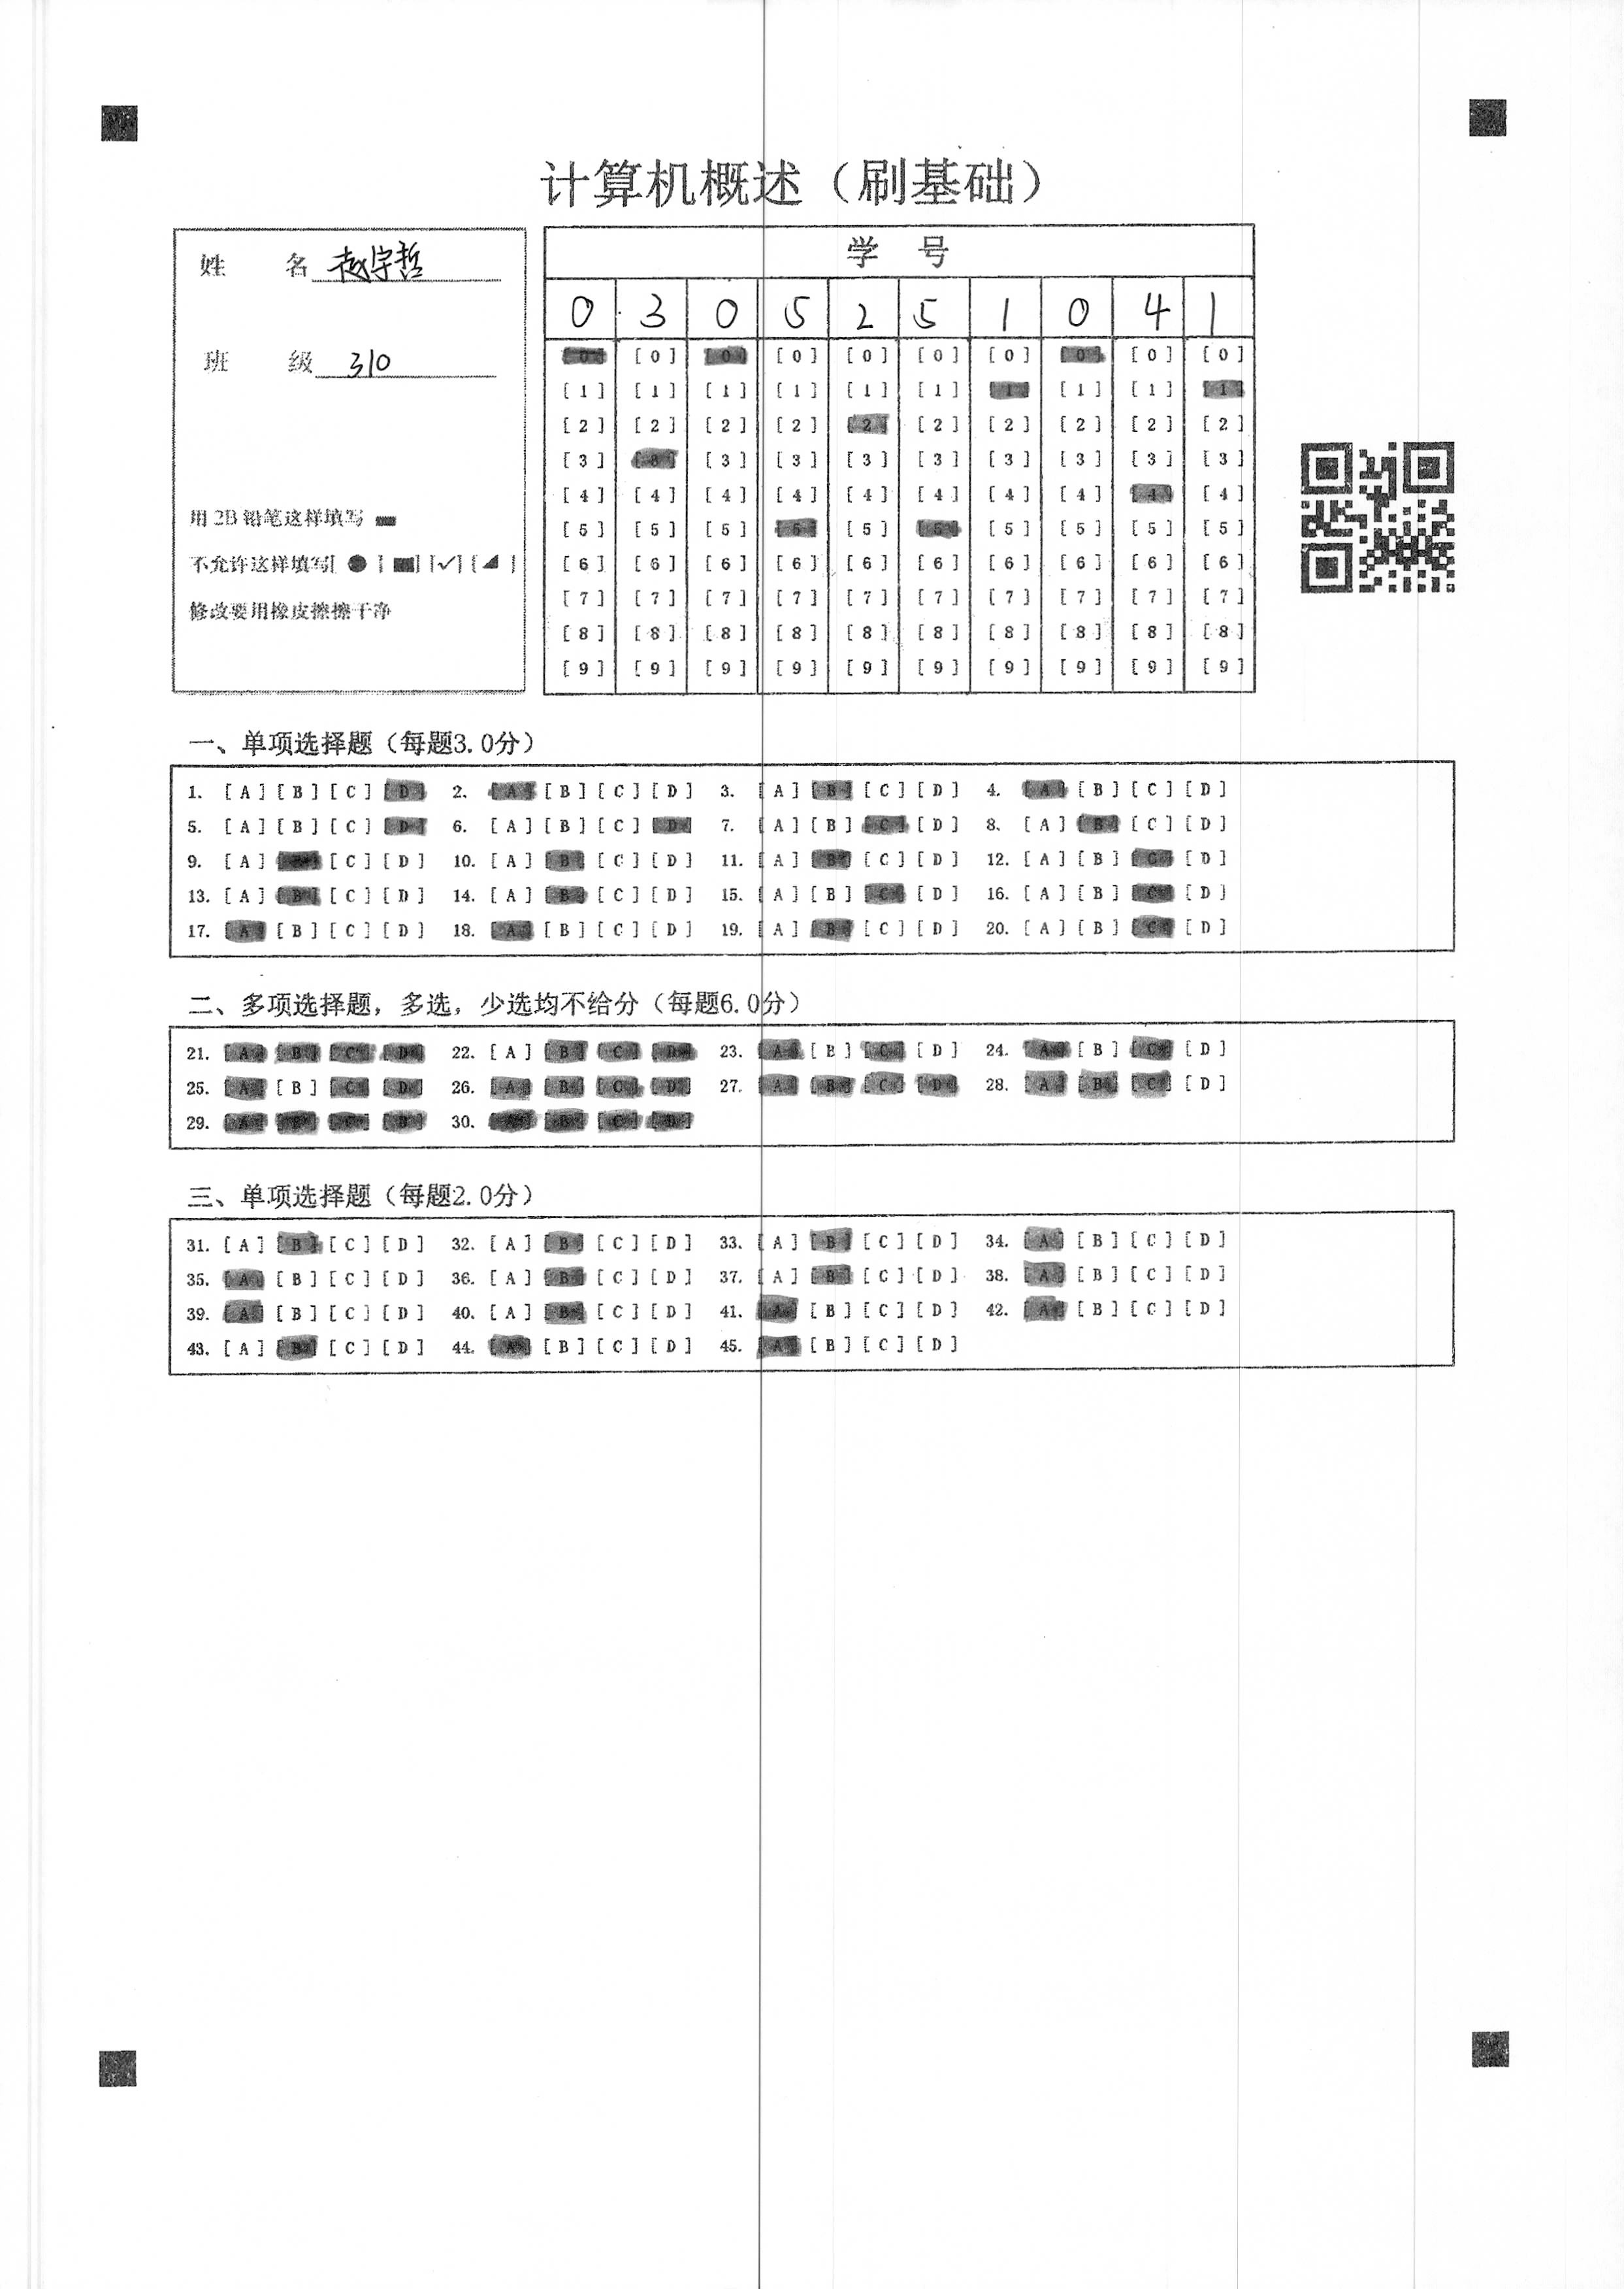 计算机概述（刷基础）
姓 名 赵宇哲
班 级 310
用2B铅笔这样填写
不允许这样填写[ ● ] [■] [✓] [◢ ]
修改要用橡皮擦擦干净
学 号
0 3 0 5 2 5 1 0 4 1
[0] [0] [0] [0] [0] [0] [0] [0] [0] [0]
[1] [1] [1] [1] [1] [1] [1] [1] [1] [1]
[2] [2] [2] [2] [2] [2] [2] [2] [2] [2]
[3] [3] [3] [3] [3] [3] [3] [3] [3] [3]
[4] [4] [4] [4] [4] [4] [4] [4] [4] [4]
[5] [5] [5] [5] [5] [5] [5] [5] [5] [5]
[6] [6] [6] [6] [6] [6] [6] [6] [6] [6]
[7] [7] [7] [7] [7] [7] [7] [7] [7] [7]
[8] [8] [8] [8] [8] [8] [8] [8] [8] [8]
[9] [9] [9] [9] [9] [9] [9] [9] [9] [9]
一、单项选择题（每题3.0分）
1. [A] [B] [C] [D] 2. [A] [B] [C] [D] 3. [A] [B] [C] [D] 4. [A] [B] [C] [D]
5. [A] [B] [C] [D] 6. [A] [B] [C] [D] 7. [A] [B] [C] [D] 8. [A] [B] [C] [D]
9. [A] [B] [C] [D] 10. [A] [B] [C] [D] 11. [A] [B] [C] [D] 12. [A] [B] [C] [D]
13. [A] [B] [C] [D] 14. [A] [B] [C] [D] 15. [A] [B] [C] [D] 16. [A] [B] [C] [D]
17. [A] [B] [C] [D] 18. [A] [B] [C] [D] 19. [A] [B] [C] [D] 20. [A] [B] [C] [D]
二、多项选择题，多选，少选均不给分（每题6.0分）
21. [A] [B] [C] [D] 22. [A] [B] [C] [D] 23. [A] [B] [C] [D] 24. [A] [B] [C] [D]
25. [A] [B] [C] [D] 26. [A] [B] [C] [D] 27. [A] [B] [C] [D] 28. [A] [B] [C] [D]
29. [A] [B] [C] [D] 30. [A] [B] [C] [D]
三、单项选择题（每题2.0分）
31. [A] [B] [C] [D] 32. [A] [B] [C] [D] 33. [A] [B] [C] [D] 34. [A] [B] [C] [D]
35. [A] [B] [C] [D] 36. [A] [B] [C] [D] 37. [A] [B] [C] [D] 38. [A] [B] [C] [D]
39. [A] [B] [C] [D] 40. [A] [B] [C] [D] 41. [A] [B] [C] [D] 42. [A] [B] [C] [D]
43. [A] [B] [C] [D] 44. [A] [B] [C] [D] 45. [A] [B] [C] [D]